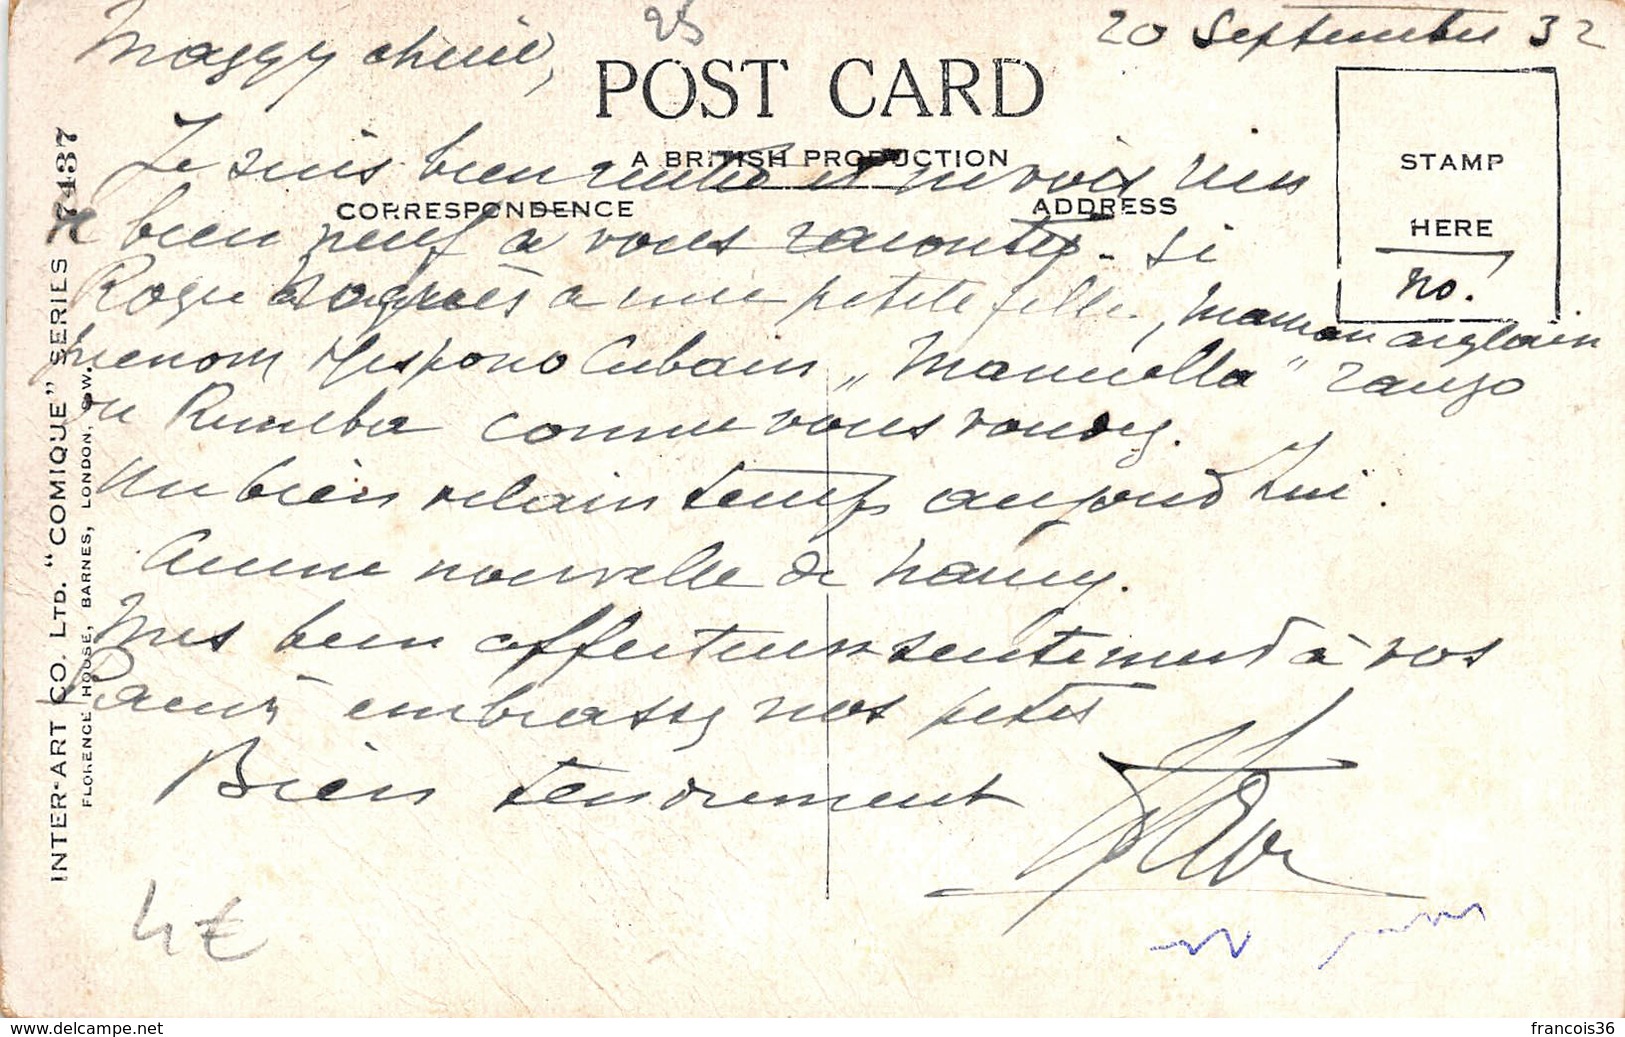 25
20 Septembre 32
Maggy chérie,
POST CARD
A BRITISH PRODUCTION
CORRESPONDENCE
ADDRESS
STAMP
HERE
no.
Je suis bien rentré et ne vois rien
bien neuf à vous raconter. Si
Roger à une petite fille, maman anglaise
prénom Hispano Cubain „Manuella" Tango
ou Rumba comme vous voudrez.
Un bien vilain temps aujourd'hui.
Aucune nouvelle de Nancy.
Mes bien affectueux sentiments à vos
Parents embrassez nos petits
Bien tendrement
INTER-ART CO. LTD. "COMIQUE" SERIES 7437
FLORENCE HOUSE, BARNES, LONDON, S.W.
4€
www.delcampe.net
francois36